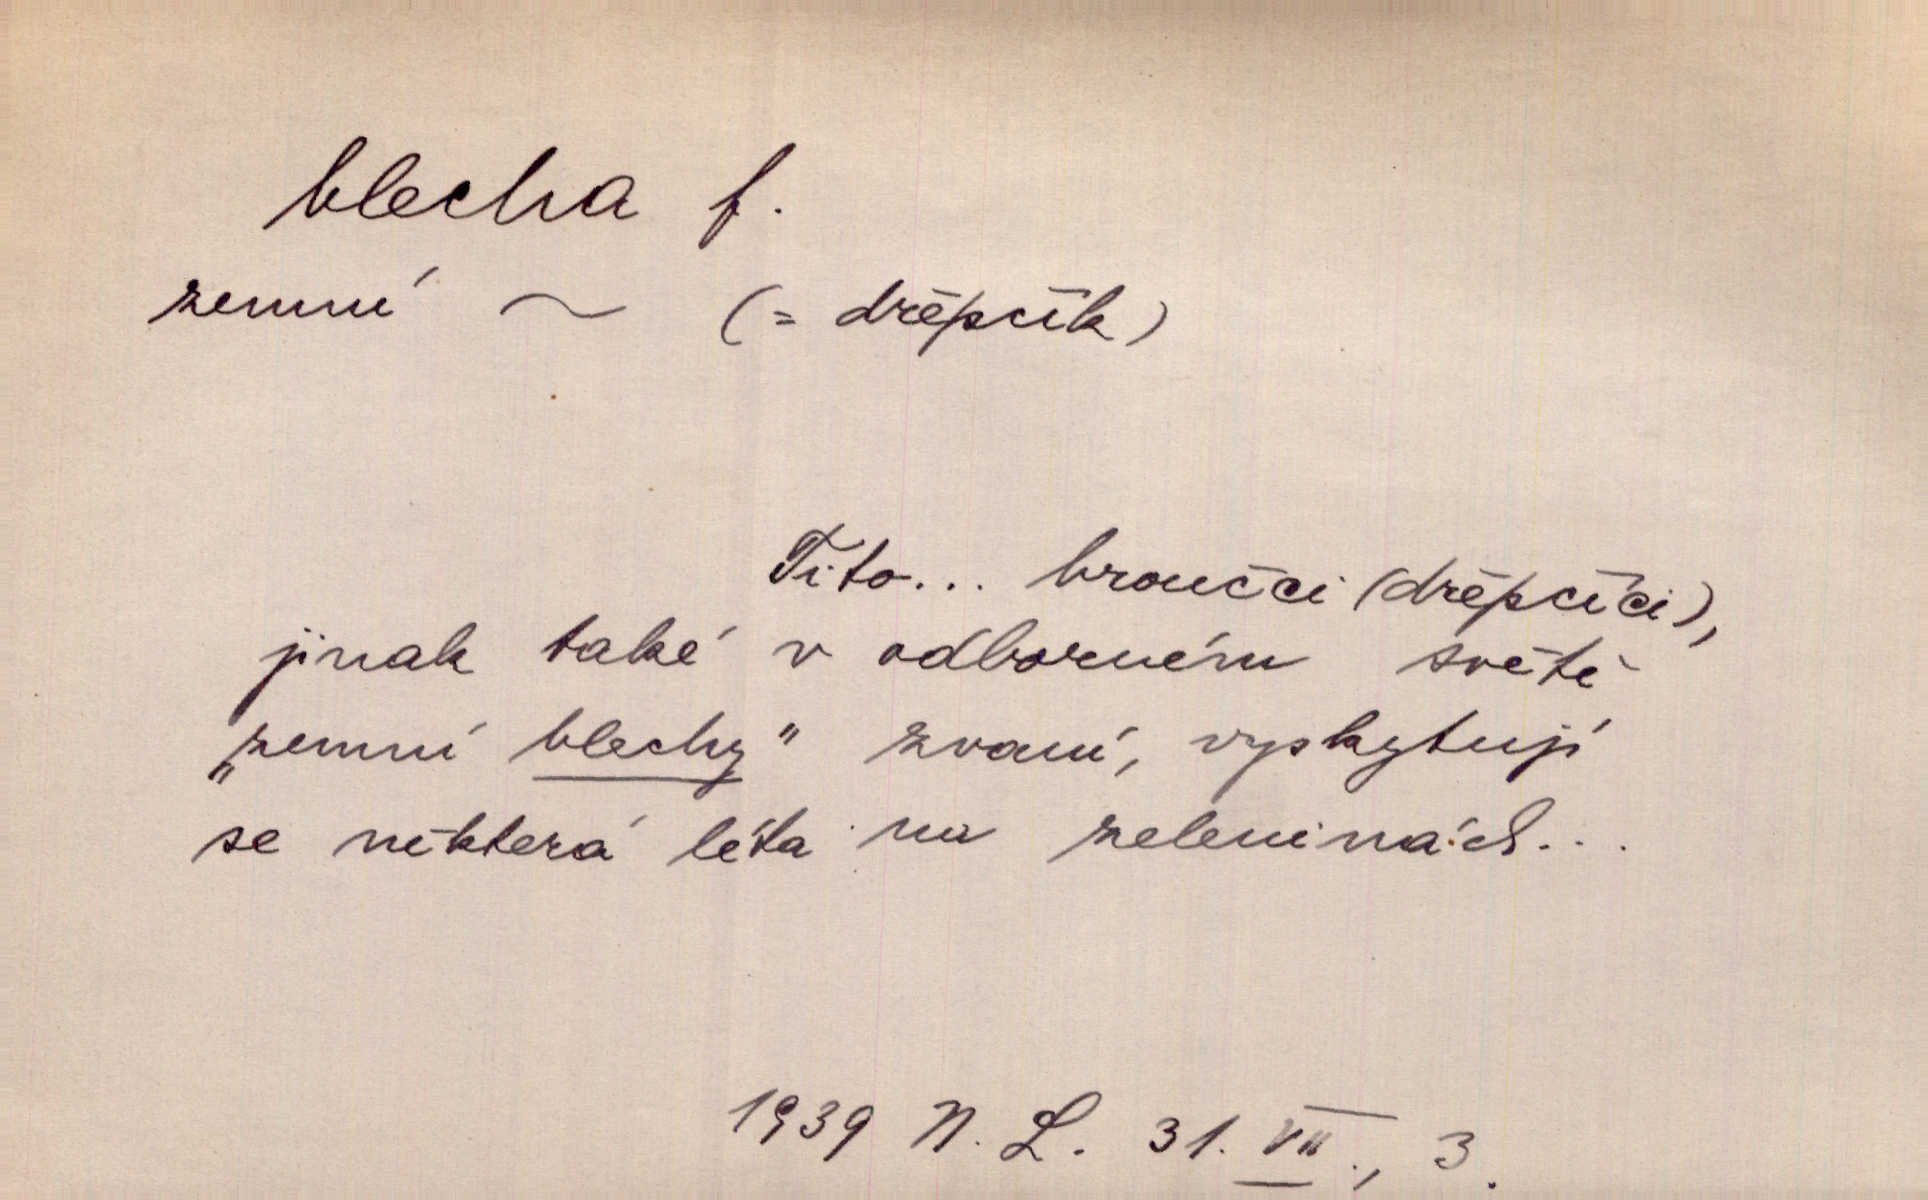 blecha f.
zemní ~ (= dřepčík)
Tito... broučci (dřepčíci),
jinak také v odborném světě
„zemní blechy" zvaní, vyskytují
se některá léta na zeleninách...
1939 N. L. 31. VII., 3.